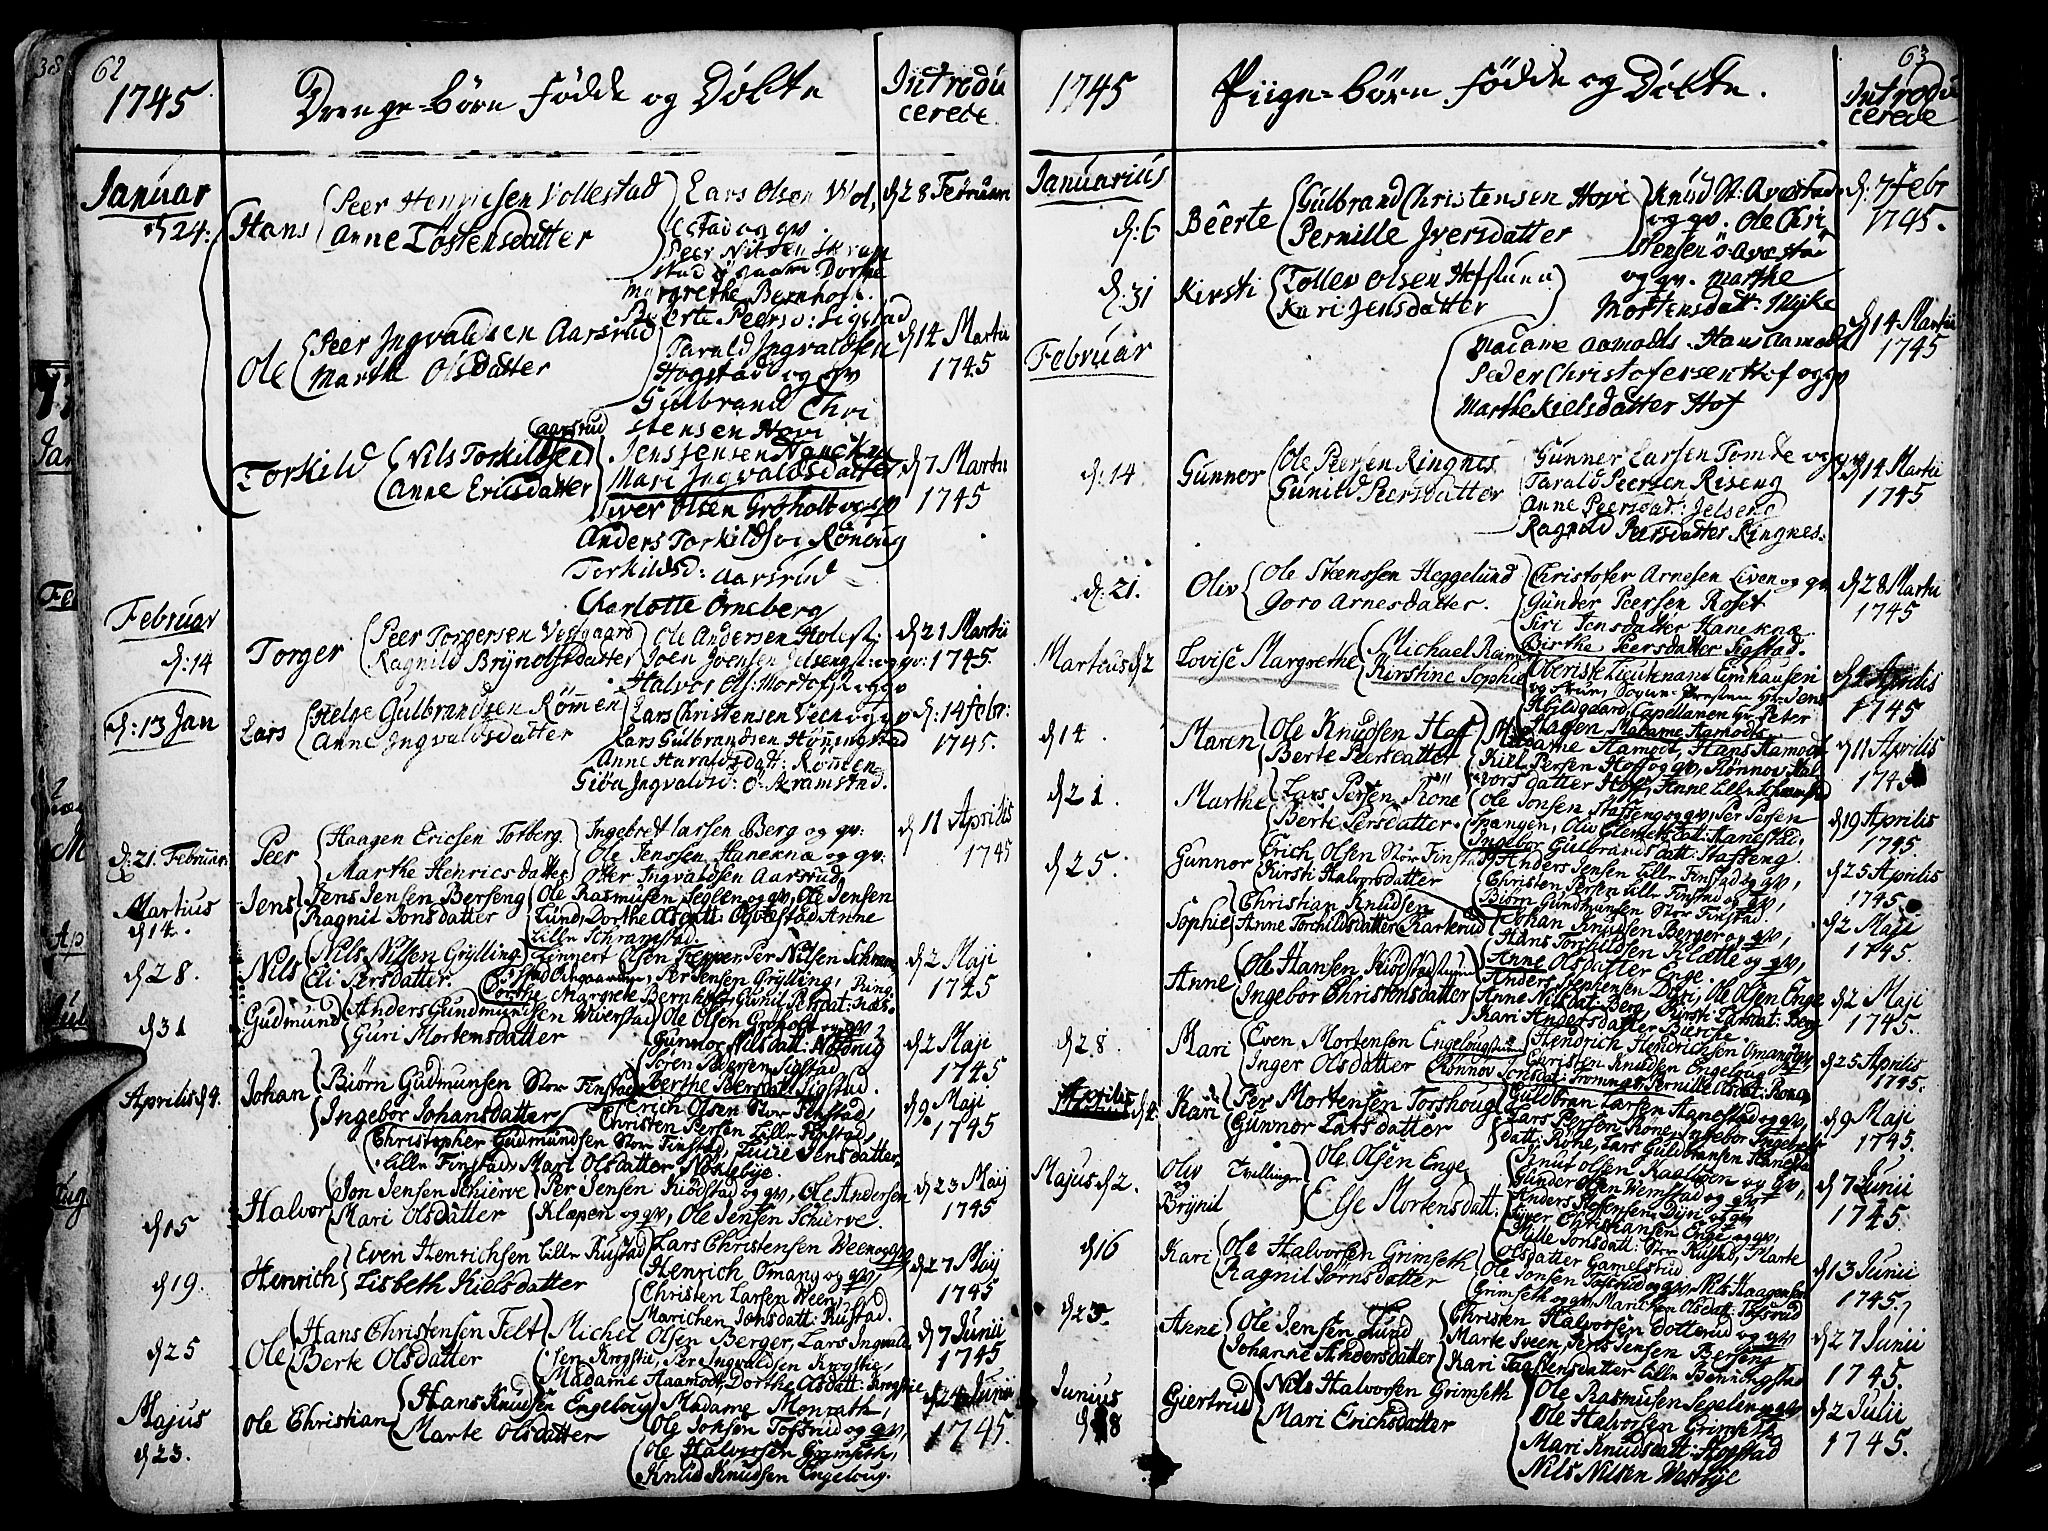 62
1745
Drenge-børn Fødde og Døbte
Introdu
cerede
Januar
d 24.
Hans
Peer Henricsen Vollestad
Anne Tostensdatter
Lars Olsen Vol,
lestad og qv.
Peer Nilsen Skram
stad
Dorthe
Margrethe Bernhof.
Beerte Peersd: Sigstad
d 28 Februarii
Ole
Peer Ingvaldsen Aarsrud
Marthe Olsdatter
Tarald Ingvaldsen
Hogstad og qv
Gulbrand Chri
stensen Hovi
d 14 Martii
1745
Torkild
Nils Torkildsen
Aarsrud
Anne Ericsdatter
Jens Jensen Hanekne
Mari Ingvaldsdatter
Siver Olsen Groholt og qv
Anders Torkildsen Rönoug
Torkildsd: Aarsrud
Charlotte Örneberg
d 7 Martii
1745
Februar
d: 14
Torger
Peer Torgersen Vesgaard
Ragnild Brynolfsdatter
Ole Andersen Holest:
Joen Joensen Jelseng st: og qv:
Halvor Ols: Mortofsk og qv
d 21 Martii
1745.
d: 13 Jan
Lars
Helge Gulbrandsen Römen
Anne Ingvaldsdatter
Lars Christensen Veen og qv
Lars Gulbrandsen Hönningstad
Anne Haraldsdatt: Römen
Giöa Ingvaldsd: Ö. Skramstad.
d: 14 febr:
1745.
d: 21. Februar:
Peer
Haagen Ericsen Torberg.
Marthe Henricsdatter
Ingebret Larsen Berg og qv:
Ole Jenssen Hanekna og qv:
Otter Ingvaldsen Aarsrud
d 11 Aprilis
1745
Martius
d 14.
Jens
Jens Jensen Berseng
Ragnil Jonsdatter
Ole Rasmusen Seglen og qv, Ole Jensen
Lund, Dorthe Olsdatt: Ovæstad Anne
Lille Schramstad.
d 28.
Nils
Nils Nilsen Grylling
Eli Persdatter.
Linnert Olsen Tepper Per Nilsen Schram,
stad Per Jensen Grylling,
Dorthe Margrete Bernhoft, Gunil Persdat: Ring,
næs.
d 2 Maji
1745
d 31
Gudmund
Anders Gundmundsen Wiverstad
Guri Mortensdatter
Ole Olsen Groholt og qv,
Gunnor Nilsdatt: Nödrug
Sören Peersen Sigstad
Berthe Peersdatt: Sigstad.
d 2 Maji
1745
Aprilis d 4.
Johan
Biørn Gudmunsen Stor Finstad
Ingebor Johansdatter
Erich Olsen Stor Finstad,
Christen Persen Lille Finstad,
Christopher Gudmundsen Stor Finstad, Turie Jensdatter,
Lille Finstad, Mari Olsdatter Noklebye.
d 9. Maji
1745
d 15
Halvor
Jon Jensen Schierve
Mari Olsdatter
Per Jensen Kiödstad og qv, Ole Andersen
Klæpen og qv, Ole Jensen Schierve.
d 23 Maij
1745
d 19.
Henrich
Even Henrichsen Lille Rustad
Lisbeth Kielsdatter
Lars Christensen Ween og qv,
Henrich Omang og qv,
Christen Larsen Ween,
Marichen Jonsdatt: Rustad.
d 27 Maij
1745
d 25
Ole
Hans Christensen Felt
Berte Olsdatter
Michel Olsen Berger, Lars Ingvald,
sen Krogstie, Per Ingvaldsen Krogstie,
Madame Haamodt, Dorthe Olsdatt: Krogstie
d 7 Junii
1745
Majus
d 23.
Ole Christian
Hans Knudsen Engeloug
Marte Olsdatter
Madame Monrath,
Ole Jonsen Tofsrud og qv,
Ole Halvorsen Grimseth,
Knud Knudsen Engeloug.
d 24 Junii
1745.
63
1745
Piige-børn Fødde og Döbte.
Introdu
cerede
Januarius
d: 6
Beerte
Gulbrand Christensen Hovi
Pernille Iversdatter
Knud St: Avestad
og qv. Ole Chri,
stensen Ö Avestad
og qv. Marthe
Mortensdat: Myke
d: 7 Febr
1745.
d: 31
Kirsti
Tollev Olsen Hofstunn
Kari Jensdatter
Madame Aamodts. Hans Aamodt
Peder Christofersen Hof og qv
Marthe Kielsdatter Hof
d 14 Martii
1745
Februar
d: 14
Gunnor
Ole Peersen Ringnes
Gunild Peersdatter
Gunner Larsen Tomde og qv
Tarald Peersen Riseng
Anne Peersdat: Jelseng
Ragnild Peersdatter Ringnes.
d 14 Martii
1745
d: 21.
Oliv
Ole Steenssen Heggelund
Goro Arnesdatter.
Christofer Arnesen Liven og qv
Gunder Peersen Roset
Siri Jensdatter Hanekna
Birthe Peersdatter Sigstad.
d 28 Martii
1745
Martius d 2
Lovise Margrethe
Michael Ramm
Kirstine Sophie
Oberiste Lieutenant Emhausen
og Frue, Sogne-Præsten Hr: Jens
Abildgaard, Capellanen Hr Peter
Hagen, Madame Aamodts
d 4 Aprilis
1745
d 14.
Maren
Ole Knudsen Hoff
Berte Persdatter
Madame Hamodt, Hans Hamodt
Kiel Persen Hoff og qv, Rönnov Hal,
vors datter Hoff, Anne Lille Schramstad
d 11 Aprilis
1745
d 21.
Marthe
Lars Persen Röne
Berte Persdatter.
Ole Jonsen Staffeng og qv, Per Persen
Spangen, Oliv Clemetsdat: Hanestad,
Ingebor Gulbrandsdatt: Staffeng
d 19 Aprilis
1745.
d 25.
Gunnor
Erich Olsen Stor Finstad
Kirsti Halvorsdatter
Anders Jensen Lille Finstad og qv,
Christen Persen Lille Finstad og qv,
Biørn Gundmundsen Stor Finstad.
d 25 Aprilis
1745.
Sophie
Christian Knudsen
Anne Torchildsdatter Karterud
Johan Knudsen Berger og qv,
Hans Torchildsen Klætte og qv,
Anne Olsdatter Enge.
d 2 Maji
1745.
Anne
Ole Hansen Kiödstadstuen
Ingebor Christensdatter
Anders Stephensen Dyri, Ole Olsen Enge
Anne Nilsdat: Berg Kirsti Larsdat: Berg
Kari Andersdatter Bierche.
d 2 Maji
1745.
d 28.
Mari
Even Mortensen Engelougstuen
Inger Olsdatter
Hendrich Hendrichsen Omang og qv
Christen Knudsen Engeloug
Rönnov Jonsdat: Frommes, Pernille Olsdat: Ronge
d 25 Aprilis
1745.
Aprilis d 4.
Kari
Per Mortensen Torshoug
Gunnor Larsdatter
Guldbran Larsen Hanestad og qv,
Lars Persen Röne, Ingebor Ingebrets
datt: Röne, Lars Guldbransen Hanestad
d 9 Maji
1745.
Majus d 2.
Oliv
og
Brynil
Tvillinger
Ole Olsen Enge
Else Mortensdatt:
Knut Olsen Kaalsen og qv,
Gunder Olsen Wemstad og qv
Anders Steffensen Dyri og qv
Siver Christiansen Enge og qv,
d 7 Junii
1745.
d 16
Kari
Ole Halvorsen Grimseth
Ragnil Jörnsdatter
Mille Jonsdatt: Stor Rustad, Marte
Olsdatter Gamelstrud
Ole Jonsen Tofsrud og qv, Nils Haagensen
Grimseth og qv, Marichen Olsdatt: Tofsrud
d 13 Junii
1745.
d 23.
Anne
Ole Jensen Lund
Johanne Andersdatter
Christen Halvorsen Dotterud og qv
Marte Sveen, Jens Jensen Berseng
Kari Taastensdatter Lille Benningstad
d 27 Junii
1745.
Junius
d 8
Giertrud
Nils Halvorsen Grimseth
Mari Erichsdatter
Ole Rasmusen Segelen og qv
Ole Halvorsen Grimseth
Mari Knudsdatt: Hogstad
Nils Nilsen Westbye
d 2 Julii
1745.